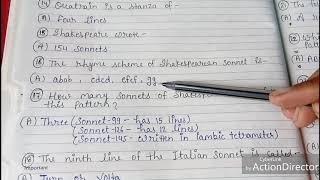 (14) Quatrain is a stanza of -
(A) four lines
(15) Shakespeare wrote -
(A) 154 sonnets
(16) The rhyme scheme of Shakespearean sonnet is -
(A) abab, cdcd, efef, gg
(17) How many sonnets of
this pattern?
(A) Three (Sonnet-99 - has 15 lines)
(Sonnet-126 - has 12 lines)
(Sonnet-145 - written in iambic tetrameter)
(18) The ninth line of the Italian Sonnet is called -
(A) Turn or Volta
CyberLink
by ActionDirector